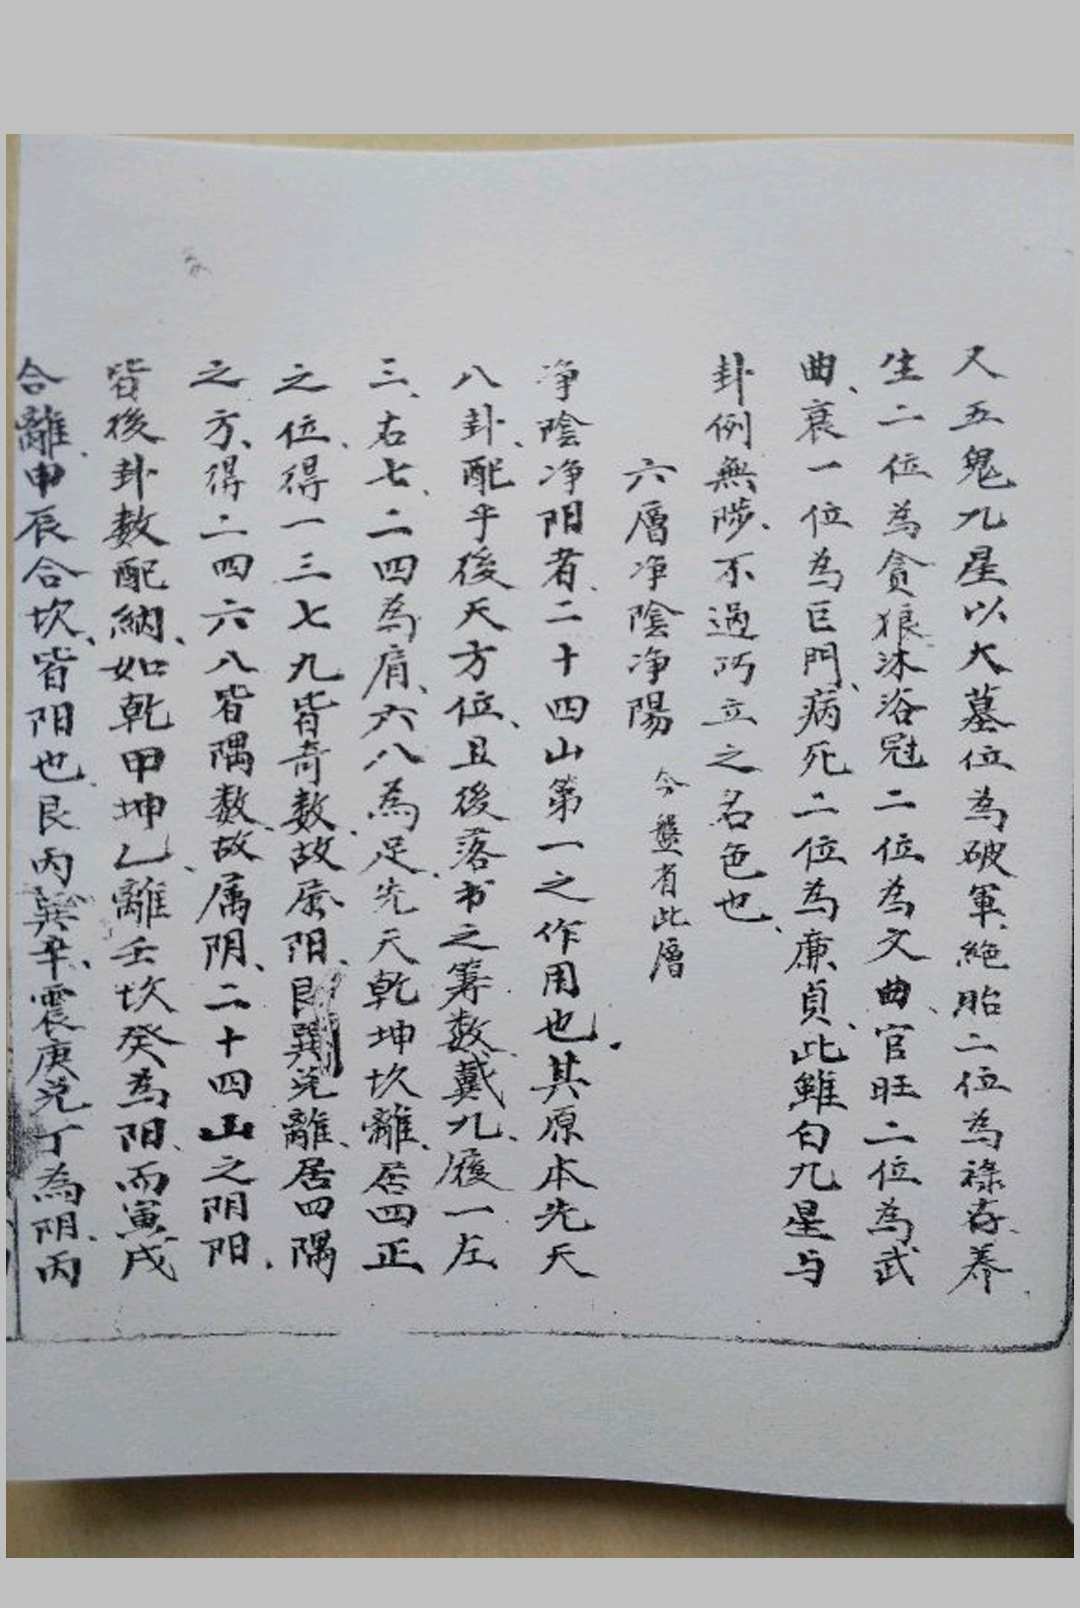 又五鬼九星以大墓位為破軍、絶胎二位為祿存、养
生二位為貪狼、沐浴冠二位為文曲、官旺二位為武
曲、衰一位為巨門、病死二位為廉貞、此雖句九星与
卦例無涉、不過巧立之名色也、
六層净陰净陽 今盤有此層
净陰净阳者、二十四山第一之作用也、其原本先天
八卦、配乎後天方位、且後落书之筭数、戴九、履一、左
三、右七、二四為肩、六八為足、先天乾坤坎離、居四正
之位、得一三七九皆奇数、故属阳、艮巽兑離、居四隅
之方、得二四六八皆隅数、故属阴、二十四山之阴阳、
皆後卦数配納、如乾甲坤乚、離壬坎癸為阳、而寅戌
合離、申辰合坎、皆阳也、艮丙巽辛、震庚兑丁為阴、丙